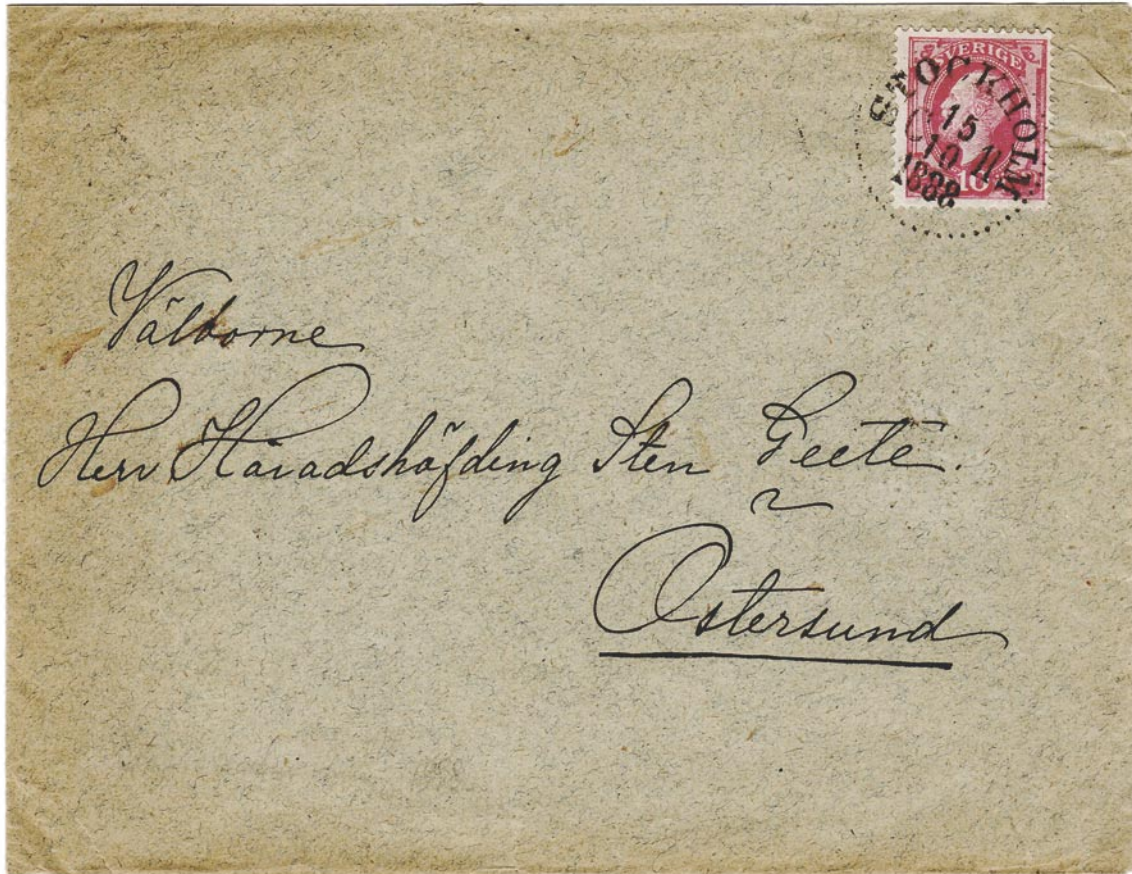 SVERIGE
STOCKHOLM
15
10
1888
10
Välborne
Herr Häradshöfding Sten Geete.
Östersund